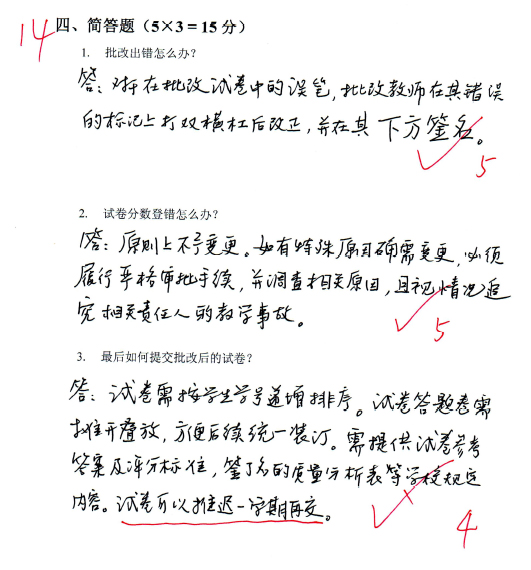 14 四、简答题（5×3＝15 分）
1. 批改出错怎么办?
答：对于在批改试卷中的误笔，批改教师在其错误
的标记上打双横杠后改正，并在其下方签名。
5
2. 试卷分数登错怎么办?
答：原则上不予变更。如有特殊原因确需变更，必须
履行严格审批手续，并调查相关原因，且视情况追
究相关责任人的教学事故。
5
3. 最后如何提交批改后的试卷?
答：试卷需按学生学号递增排序。试卷答题卷需
摊开叠放，方便后续统一装订。需提供试卷参考
答案及评分标准，签了名的质量分析表等学校规定
内容。试卷可以推迟一学期再交。
4